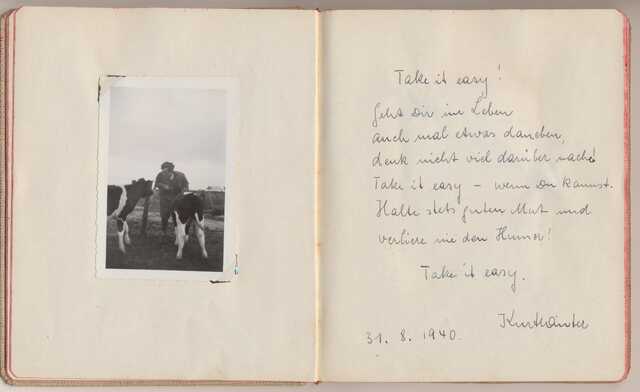 Take it easy!
Geht Dir im Leben
auch mal etwas daneben,
denk nicht viel darüber nach!
Take it easy – wenn Du kannst.
Halte stets guten Mut und
verliere nie den Humor!
Take it easy.
Kurt
31. 8. 1940.